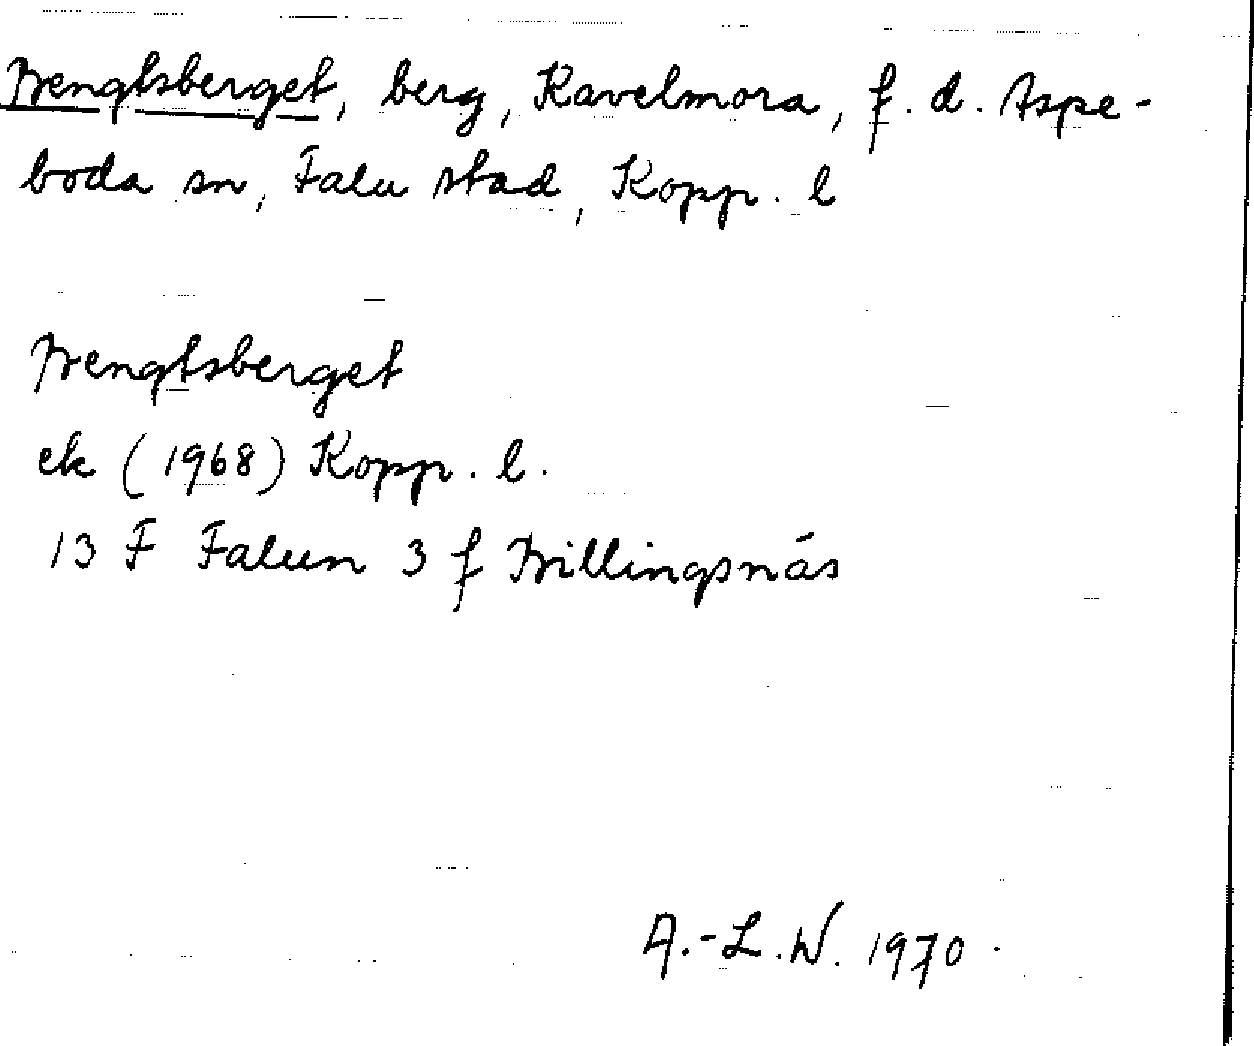 Bengtsberget, berg, Kavelmora, f. d. Aspe-
boda sn, Falu stad, Kopp. l
Bengtsberget
ek (1968) Kopp. l.
13 F Falun 3 f Billingsnäs
A.-L.W. 1970.